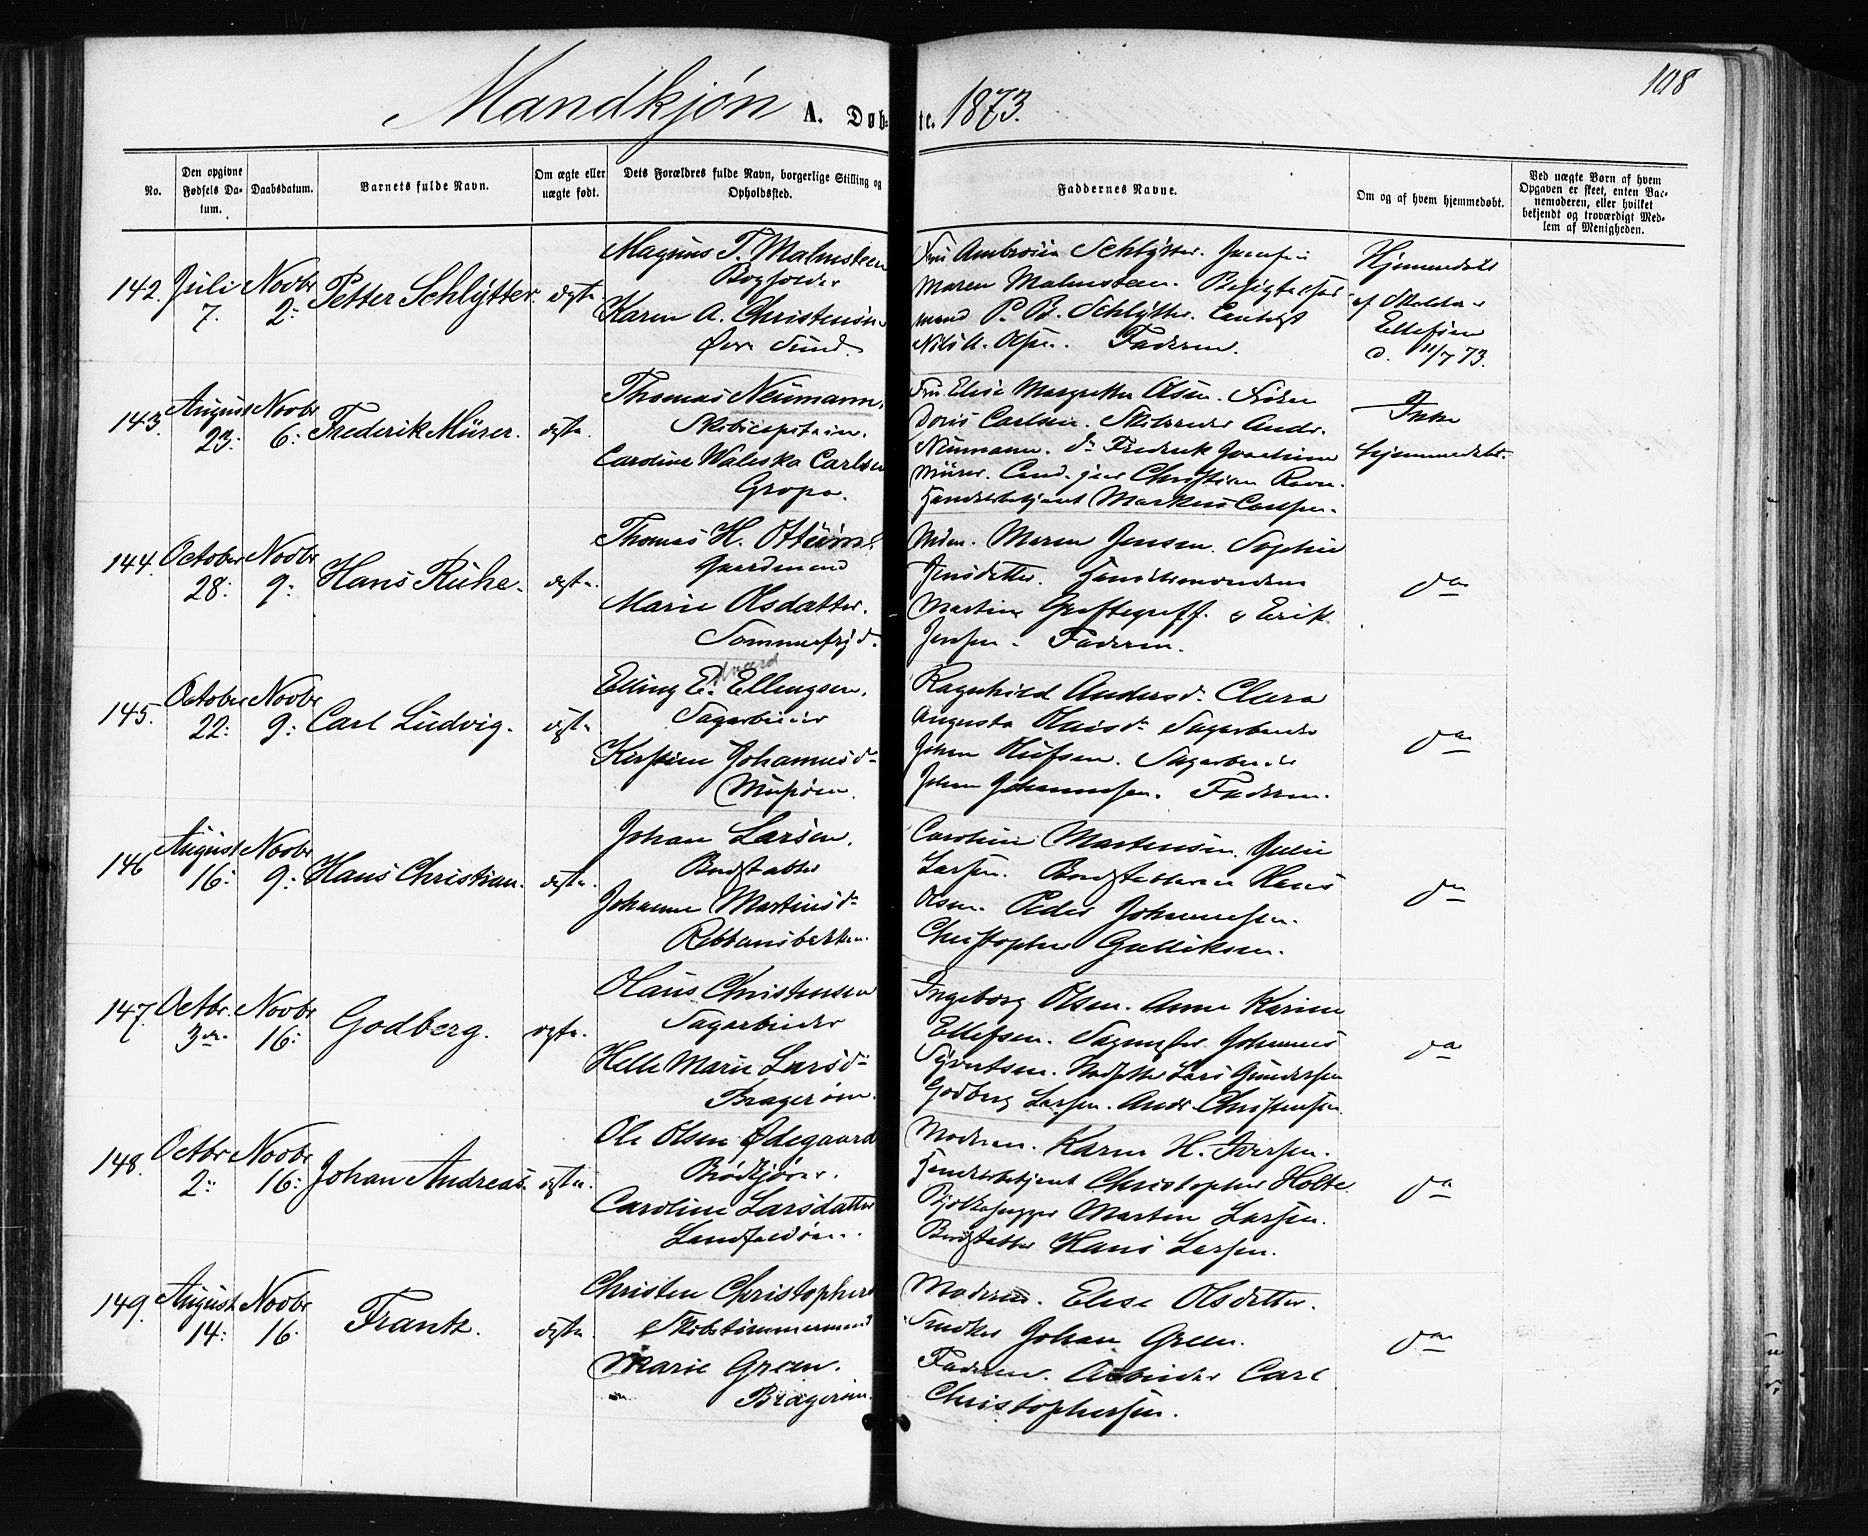 108
Mandkjøn A. Døbte. 1873.
No.
Den opgivne Fødsels Da-
tum.
Daabsdatum.
Barnets fulde Navn.
Om ægte eller
uægte født.
Dets Forældres fulde Navn, borgerlige Stilling og
Opholdssted.
Faddernes Navne.
Om og af hvem hjemmedøbt.
Ved uægte Børn af hvem
Opgaven er skeet, enten Bar-
nemoderen, eller hvilket
bekjendt og troværdigt Med-
lem af Menigheden.
142. Juli 7. Novbr 2: Petter Schlytter. ægte
Magnus T. Malmsteen
Bogholder
Karen A. Christensen
Øvre Sund.
Fru Ambrosia Schlytter.
Maren Malmsteen.
mand P. B. Schlytter.
Nils A. Olsen. Faderen.
Hjemmedøbt
af
Ellefsen
d. 11/7 73.
143. August 23: Novbr 6: Frederik Mürer. ægte.
Thomas Neumann.
Skibscaptain.
Caroline Waleska Carlsen
Gropa.
Fru Elise Margrethe Olsen. Frøken
Doris Carlsen. Skibsreder Andr.
Neumann. do Fredrik Joachim
Mürer. Cand. jur Christian Ravn.
Handelsbetjent Markus Carlsen.
Ikke
hjemmedøbt.
144. October 28: Novbr 9: Hans Ruhe. ægte.
Thomas H. Ottersen
Gaardmand
Marie Olsdatter.
Sommerfryd.
Mdm. Maren Jensen. Sophie
Jensdatter. Handelsmændene
Martin Greftegreff. & Erik
Jensen. Faderen.
do
145. October 22: Novbr 9: Carl Ludvig. ægte.
Elling E. Ellingsen.
Sagarbeider
Kirstine Johannesd.
Musøen.
Ragnhild Andersd. Clara
Augusta Olaisd. Sagarbeider
Johan Olufsen. Sagarbeider
Johan Johannesen. Faderen.
do
146 August 16: Novbr 9: Hans Christian. ægte.
Johan Larsen.
Bordstabler
Johanne Martinsd.
Rebbansbakken.
Caroline Martinsen. Julie
Larsen. Bordstablerne Hans
Olsen. Peder Johannesen.
Christopher Gulliksen.
do
147. Octbr. 3die. Novbr 16: Godberg. ægte.
Olaus Christensen
Sagarbeider
Helle Marie Larsd.
Bragerøen.
Ingeborg Olsen. Anne Karine
Ellefsen. Sagmester Johannes
Syvertsen. Lars Gundersen
Godberg Larsen. Andr. Christensen.
do
148. Octbr 2: Novbr 16: Johan Andreas. ægte.
Ole Olsen Ødegaard
Brødkjører.
Caroline Larsdatter
Landfaldøen.
Moderen. Karen H. Iversen.
Handelsbetjent Christopher Holte.
Bjelkehugger Martin Larsen.
Bordstabler Hans Larsen.
do
149. August 14: Novbr 16. Frantz. ægte.
Christen Christophers
Skibstømmermand
Marie Green.
Bragerøen.
Moderen. Elise Olsdatter.
Snedker Johan Green.
Faderen. Arbeider Carl
Christophersen.
do